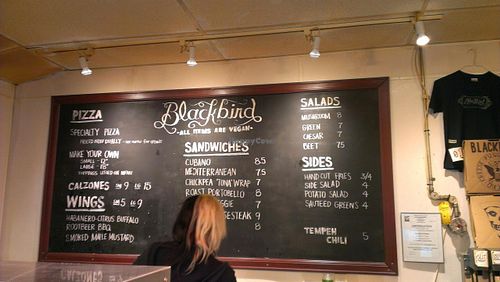 Blackbird
-ALL ITEMS ARE VEGAN-
PIZZA
SPECIALTY PIZZA
MAKE YOUR OWN
SMALL 12"
LARGE 18"
CALZONES SM 9 LG 15
WINGS SM 5 LG 9
HABANERO-CITRUS BUFFALO
ROOTBEER BBQ
SMOKED MAPLE MUSTARD
SANDWICHES
CUBANO 8.5
MEDITERRANEAN 7.5
CHICKPEA "TUNA" WRAP 7
ROAST PORTOBELLO 8
8
9
8
SALADS
MUSHROOM 8
GREEN 7
CAESAR 7
BEET 7.5
SIDES
HAND CUT FRIES 3/4
SIDE SALAD 4
POTATO SALAD 4
SAUTEED GREENS 4
TEMPEH
CHILI 5